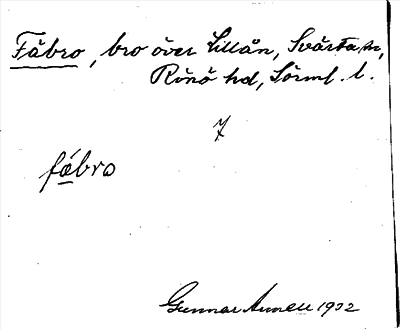 Fåbro, bro över Lillån, Svärta sn,
Rönö hd, Sörml. l.
7
fåbro
Gunnar Arnell 1932